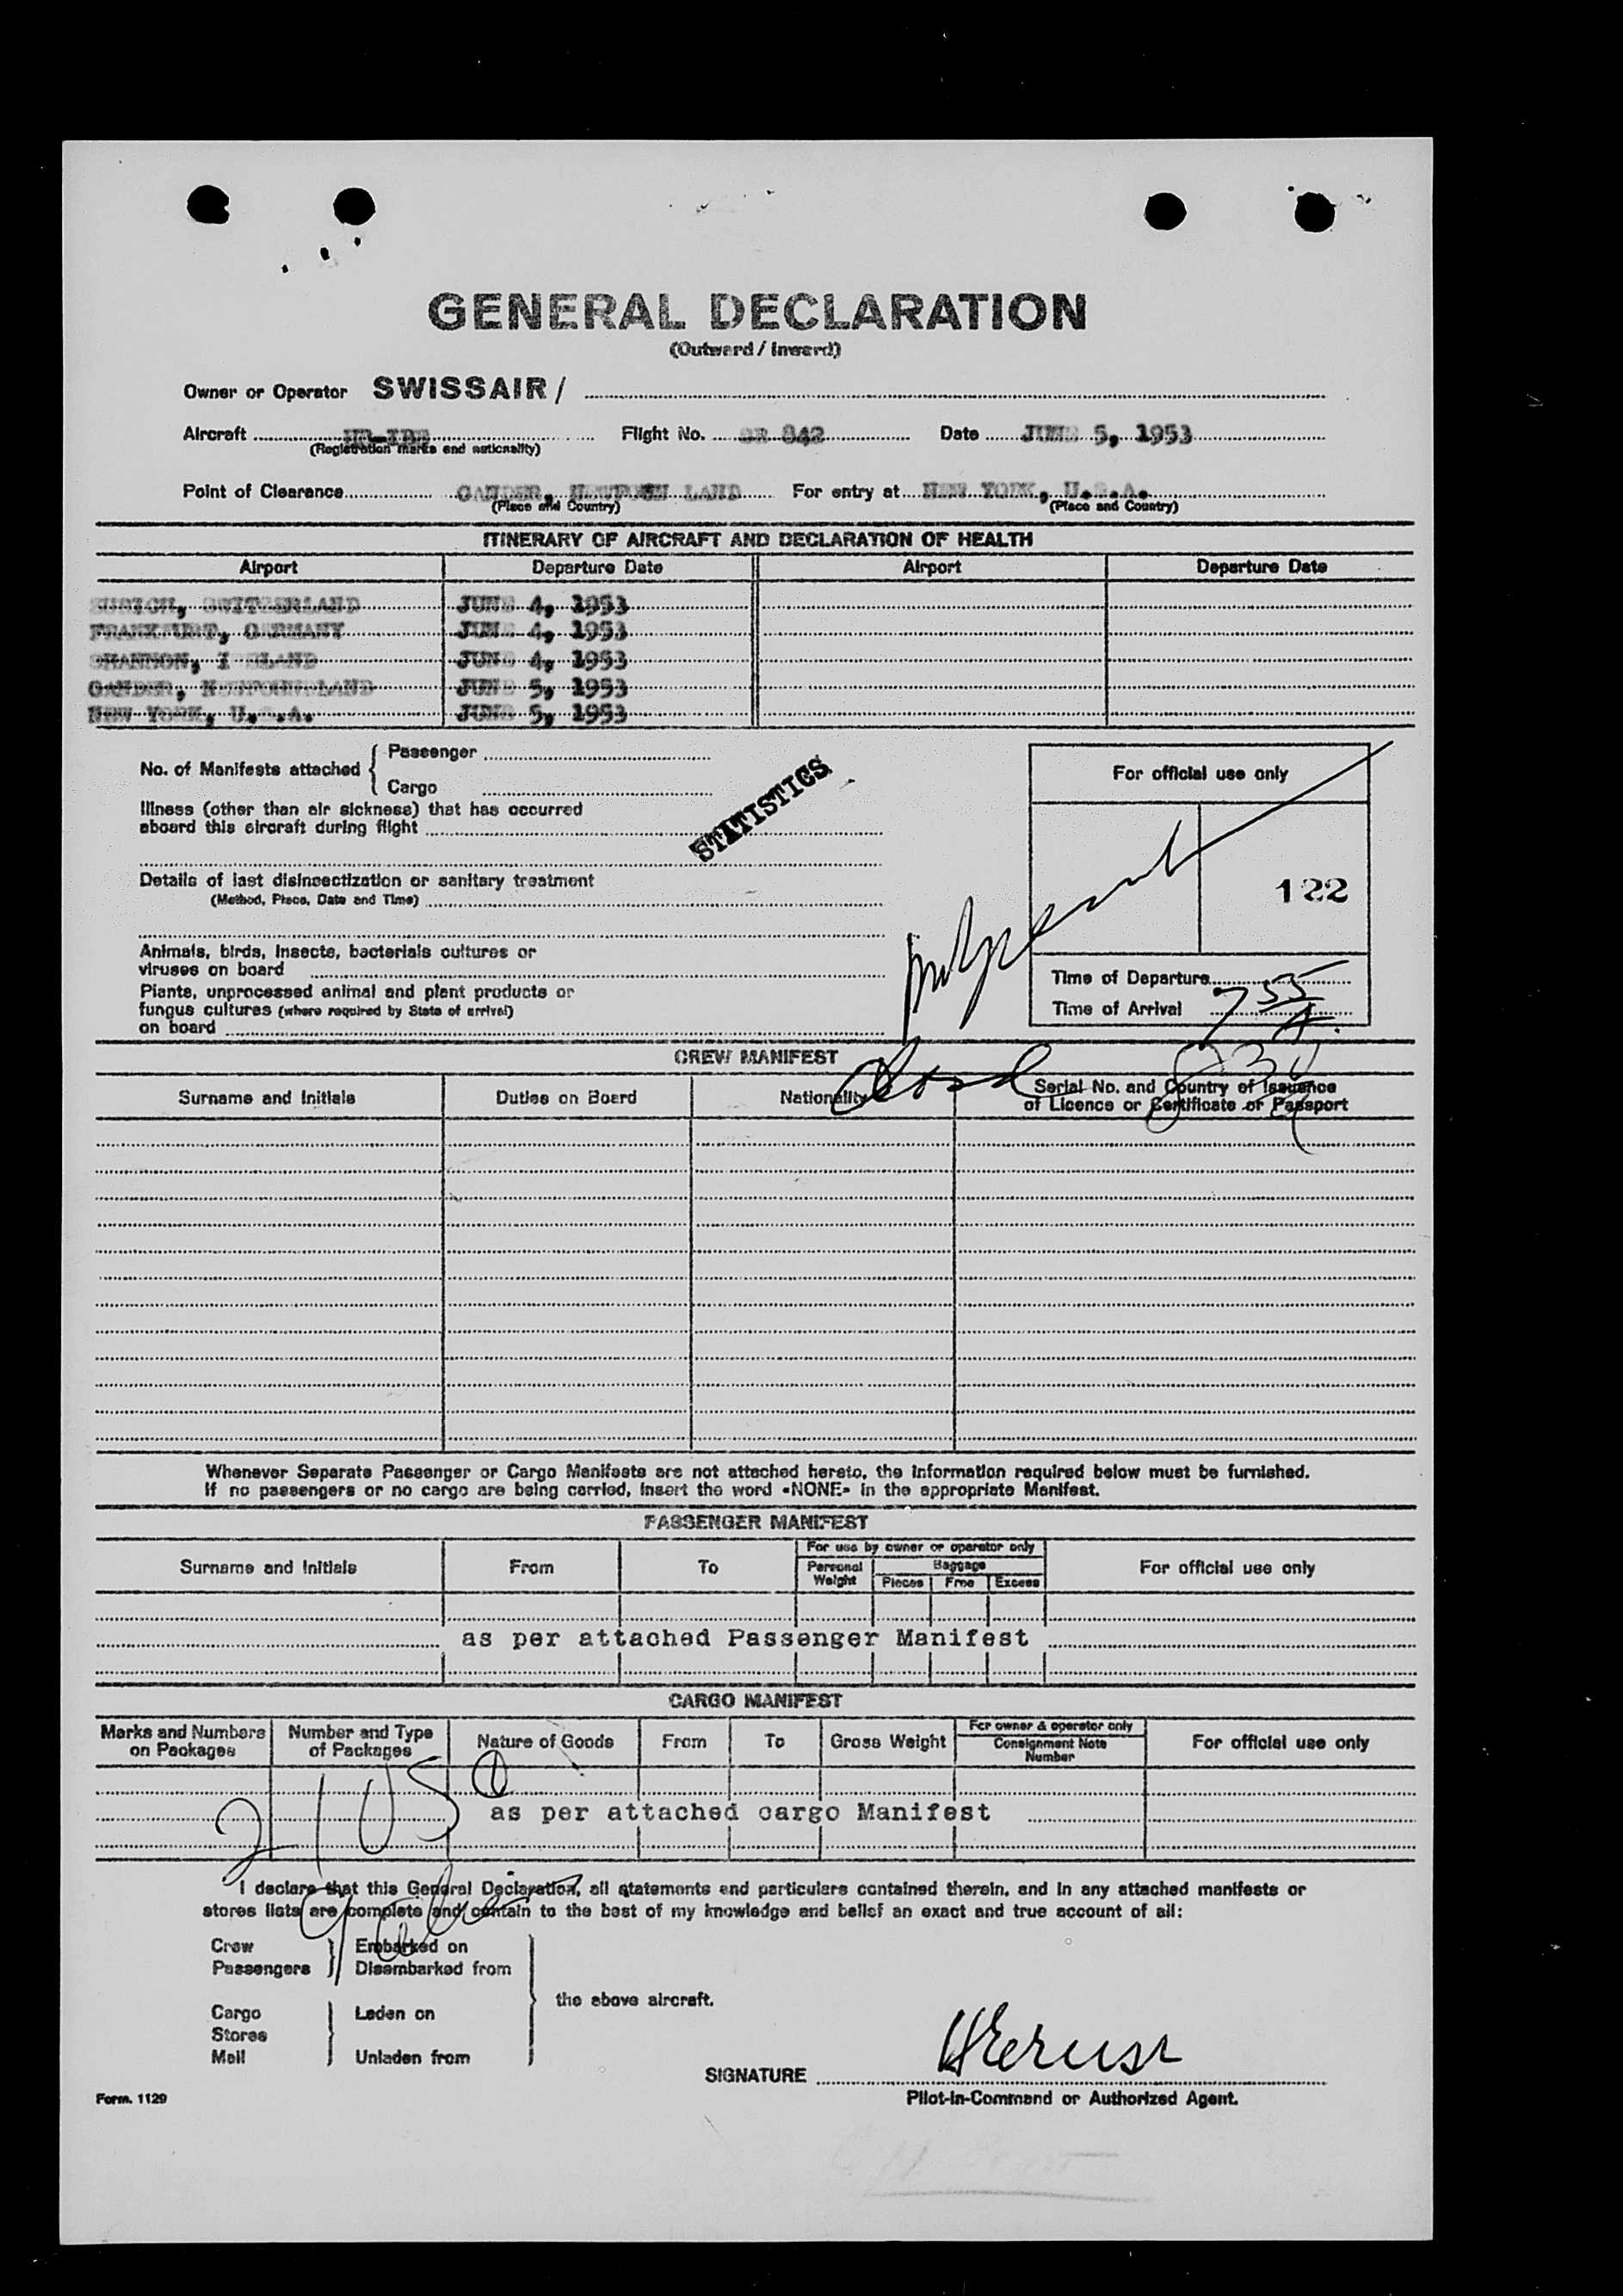 GENERAL DECLARATION
(Outward / Inward)
Owner or Operator SWISSAIR /
Aircraft
(Registration marks and nationality)
Flight No. SR 842
Date JUNE 5, 1953
Point of Clearance GANDER, LAND
(Place and Country)
For entry at NEW YORK, U.S.A.
(Place and Country)
ITINERARY OF AIRCRAFT AND DECLARATION OF HEALTH
Airport Departure Date Airport Departure Date
ZURICH, SWITZERLAND JUNE 4, 1953
FRANKFURT, GERMANY JUNE 4, 1953
SHANNON, JUNE 4, 1953
GANDER, NEWFOUNDLAND JUNE 5, 1953
NEW YORK, U.S.A. JUNE 5, 1953
No. of Manifests attached { Passenger
Cargo
Illness (other than air sickness) that has occurred
aboard this aircraft during flight
STATISTICS
Details of last disinsectization or sanitary treatment
(Method, Place, Date and Time)
Animals, birds, insects, bacterials cultures or
viruses on board
Plants, unprocessed animal and plant products or
fungus cultures (where required by State of arrival)
on board
For official use only
122
Time of Departure
Time of Arrival 7 55 A.
CREW MANIFEST
Surname and Initials Duties on Board Nationality Serial No. and Country of Issuance
of Licence or Certificate or Passport
Whenever Separate Passenger or Cargo Manifests are not attached hereto, the information required below must be furnished.
If no passengers or no cargo are being carried, insert the word -NONE- in the appropriate Manifest.
PASSENGER MANIFEST
Surname and Initials From To
For use by owner or operator only
Personal Weight Baggage
Pieces Free Excess
For official use only
as per attached Passenger Manifest
CARGO MANIFEST
Marks and Numbers
on Packages
Number and Type
of Packages
Nature of Goods From To Gross Weight
For owner & operator only
Consignment Note
Number
For official use only
2105 1
as per attached cargo Manifest
I declare that this General Declaration, all statements and particulars contained therein, and in any attached manifests or
stores lists are complete and contain to the best of my knowledge and belief an exact and true account of all:
Crew Embarked on
Passengers Disembarked from
the above aircraft.
Cargo Laden on
Stores
Mail Unladen from
SIGNATURE
Pilot-in-Command or Authorized Agent.
Form. 1129